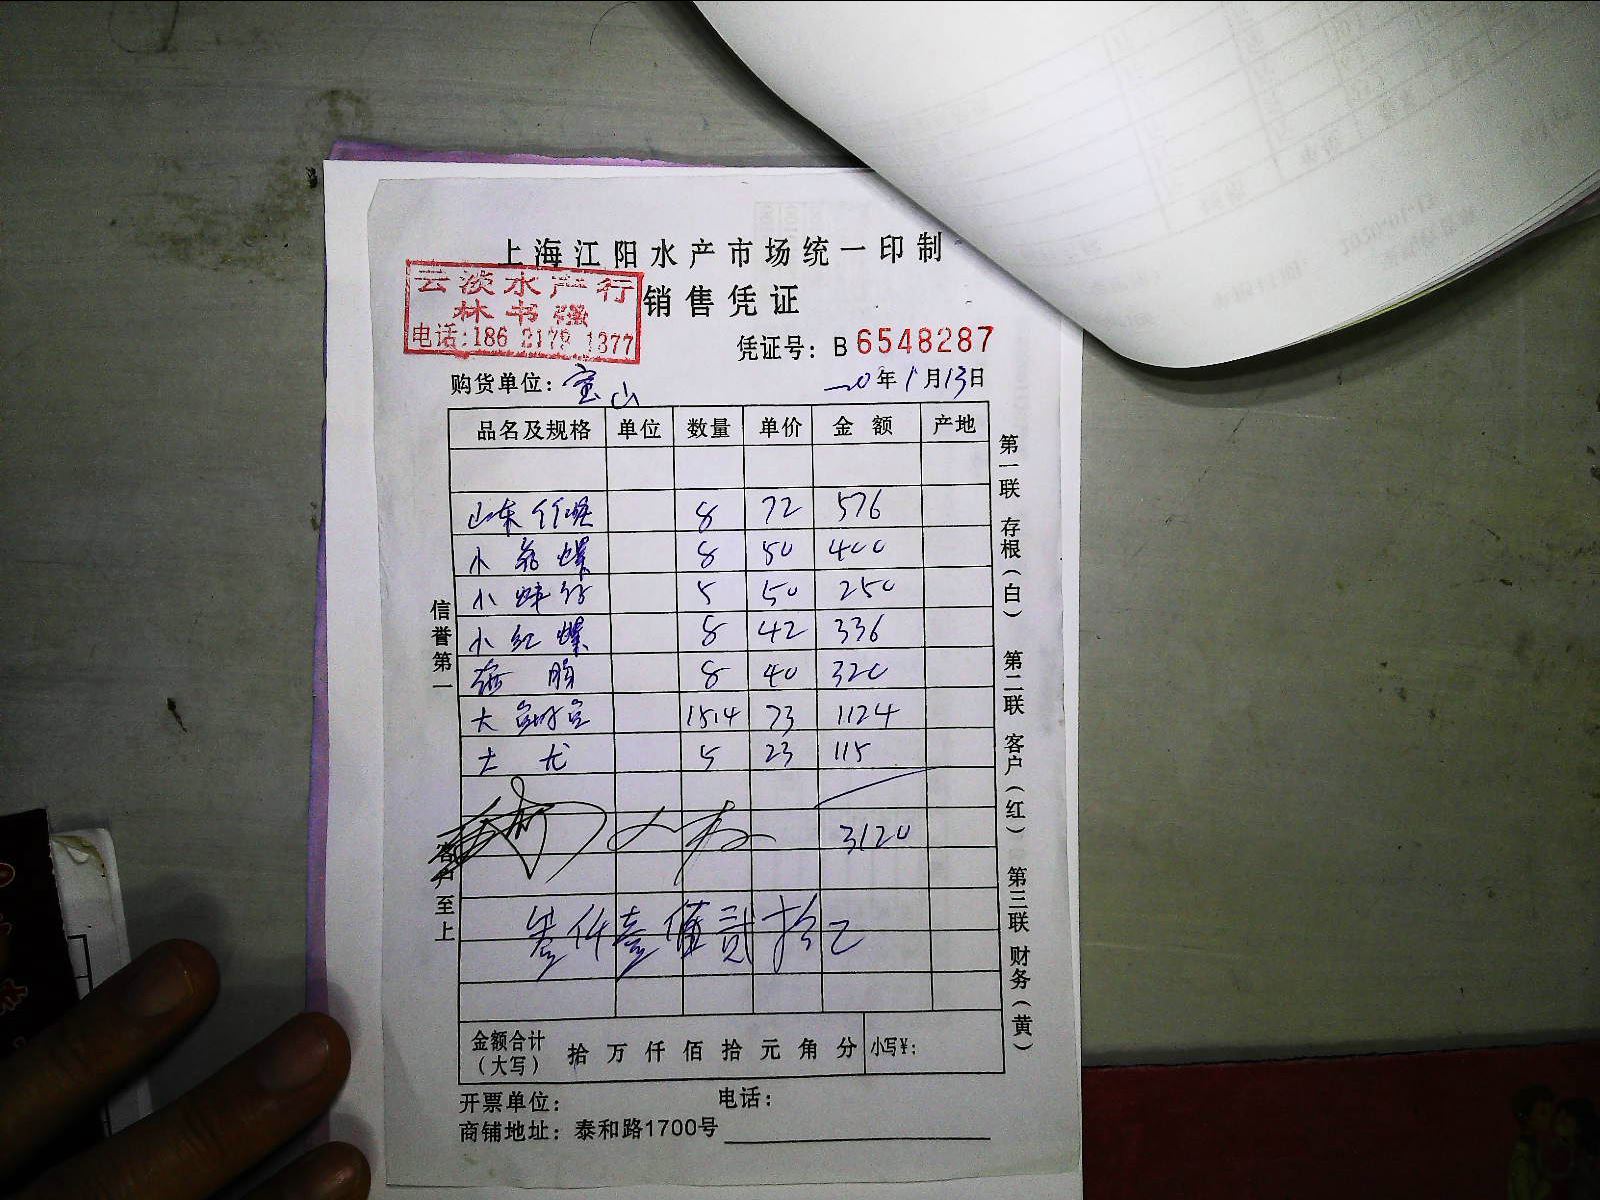 上海江阳水产市场统一印制
云淡水产行
林书强
电话:186 2179 1377
销售凭证
凭证号: B 6548287
购货单位: 宝山
20年1月13日
品名及规格 单位 数量 单价 金额 产地
山东 8 72 576
小 螺 8 50 400
小 5 50 250
小红螺 8 42 336
8 40 320
大 1514 73 1124
土尤 5 23 115
3120
叁仟壹佰贰拾元
金额合计(大写) 拾万仟佰拾元角分 小写¥:
开票单位: 电话:
商铺地址: 泰和路1700号
信誉第一
客户至上
第一联 存根(白) 第二联 客户(红) 第三联 财务(黄)